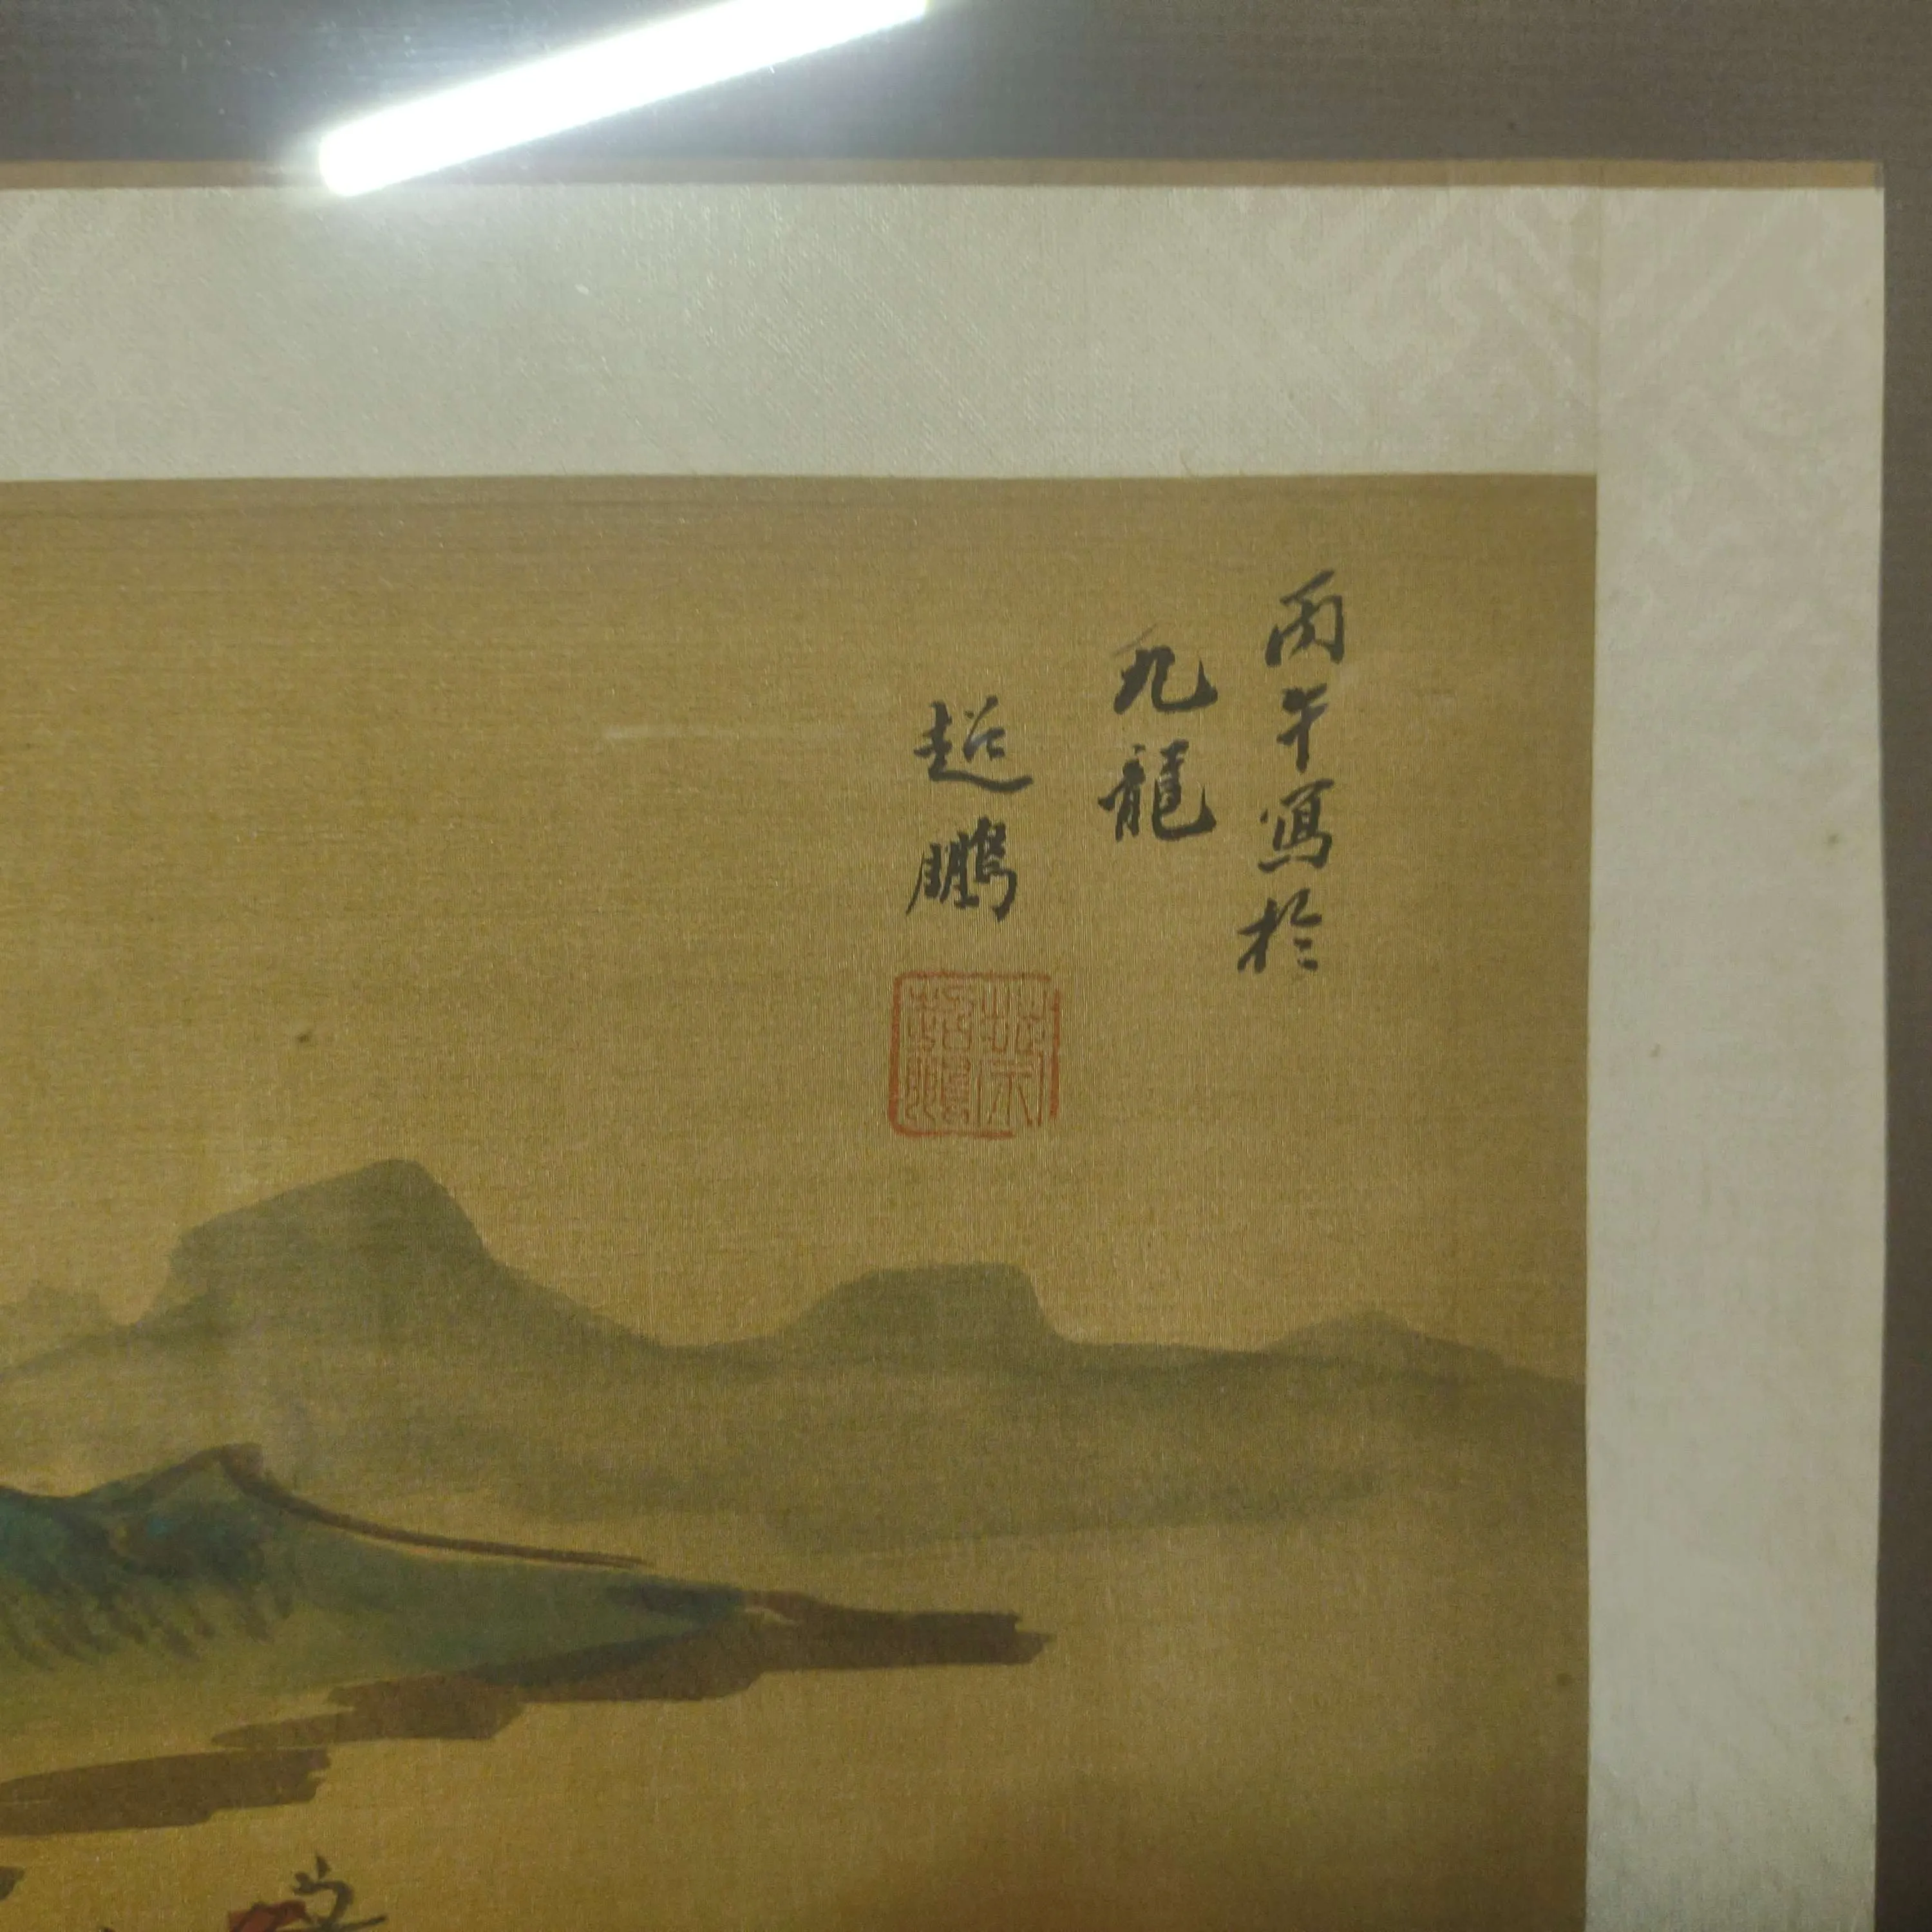 丙午寫於
九龍
超鵬